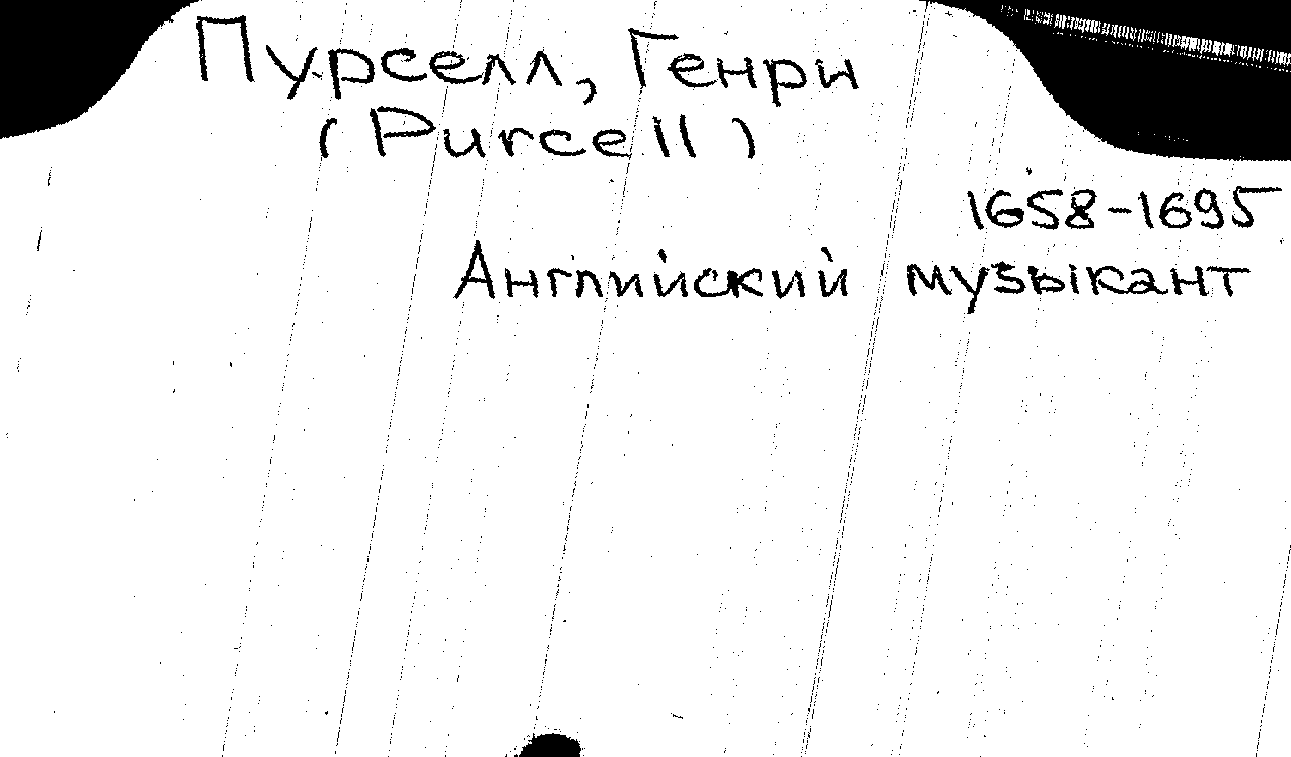 Пурселл, Генри
(Purcell)
1658-1695
Английский музыкант